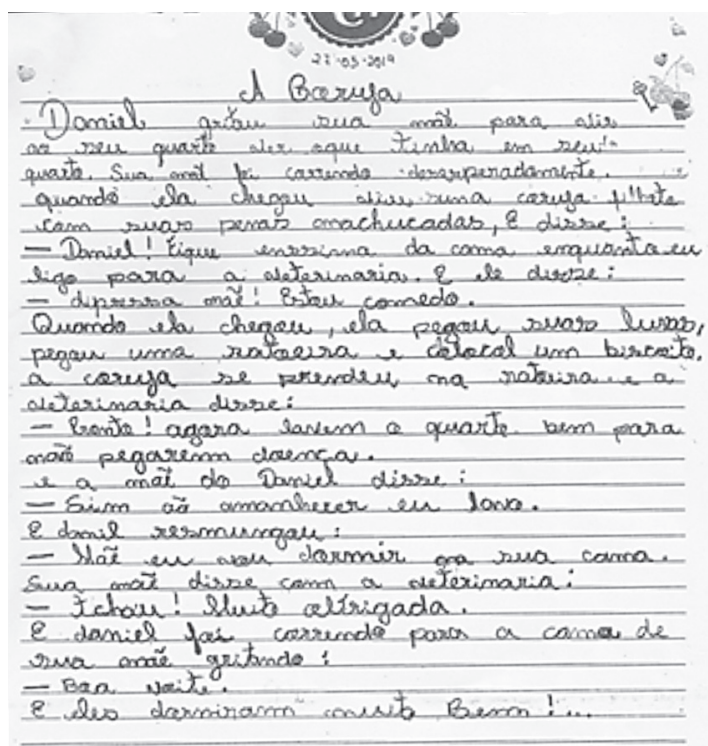 27-05-2019
A Coruja
- Daniel gritou sua mãe para vir
ao seu quarto ver oque tinha em seu
quarto. Sua mãe foi correndo desesperadamente.
quando ela chegou viu, uma coruja filhote
com suas penas machucadas, E disse:
— Daniel! Fique enssima da cama enquanto eu
ligo para a veterinaria. E ele disse:
— dipressa mãe! Estou comedo.
Quando ela chegou, ela pegou suas luvas,
pegou uma ratoeira e colocol um biscoito.
a coruja se prendeu na ratoeira e a
veterinaria disse:
— Pronto! agora lavem o quarto bem para
não pegarem doença.
e a mãe do Daniel disse:
— Sim ao amanhecer eu lavo.
E daniel resmungou:
— Mãe eu vou dormir na sua cama.
Sua mãe disse com a veterinaria:
— Tchau! Muito obrigada.
E daniel foi correndo para a cama de
sua mãe gritando:
— Boa noite.
E eles dormiram muito Bem!...